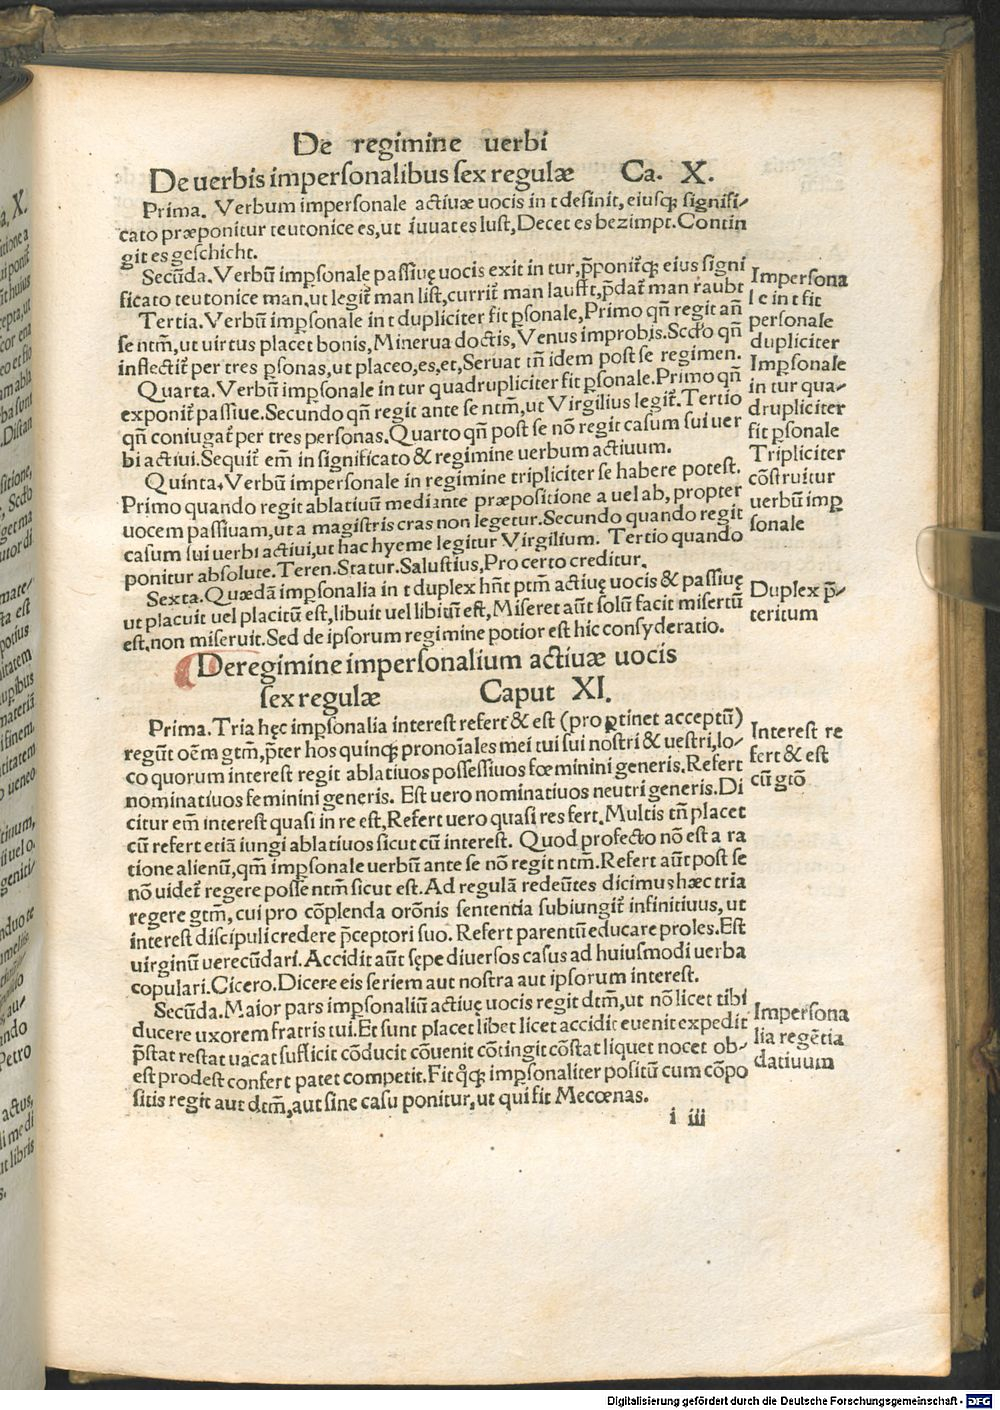 De regimine uerbi
De uerbis impersonalibus sex regulæ Ca. X.
Prima. Verbum impersonale actiuæ uocis in t desinit, eiusq; signifi⸗
cato præponitur teutonice es, ut iuuat es lust, Decet es bezimpt. Contin
git es geschicht.
Secūda. Verbū imꝑsonale passiuę uocis exit in tur, p̄ponit᷑q; eius signi
ficato teutonice man, ut legit᷑ man list, currit᷑ man laufft, p̄dat᷑ man raubt
Tertia. Verbū imꝑsonale in t dupliciter fit ꝑsonale, Primo qn̄ regit an̄
se ntm̄, ut uirtus placet bonis, Minerua doctis, Venus improbis. Scd̄o qn̄
inflectit᷑ per tres ꝑsonas, ut placeo, es, et, Seruat tn̄ idem post se regimen.
Quarta. Verbū imꝑsonale in tur quadrupliciter fit ꝑsonale. Primo qn̄
exponit᷑ passiue. Secundo qn̄ regit ante se ntm̄, ut Virgilius legit᷑. Tertio
qn̄ coniugat᷑ per tres personas. Quarto qn̄ post se nō regit casum sui uer
bi actiui. Sequit᷑ em̄ in significato & regimine uerbum actiuum.
Quinta. Verbū impersonale in regimine tripliciter se habere potest.
Primo quando regit ablatiuū mediante præpositione a uel ab, propter
uocem passiuam, ut a magistris cras non legetur. Secundo quando regit
casum sui uerbi actiui, ut hac hyeme legitur Virgilium. Tertio quando
ponitur absolute. Teren. Statur. Salustius, Pro certo creditur.
Sexta. Quædā impersonalia in t duplex hn̄t ptm̄ actiuę uocis & passiuę
ut placuit uel placitū est, libuit uel libiuū est, Miseret aūt solū facit misertū
est, non miseruit. Sed de ipsorum regimine potior est hic consyderatio.
De regimine impersonalium actiuæ uocis
sex regulæ Caput XI.
Prima. Tria hęc imꝑsonalia interest refert & est (pro ꝑtinet acceptū)
regūt oēm gtm̄, p̄ter hos quinq; pronoīales mei tui sui nostri & uestri, lo⸗
co quorum interest regit ablatiuos possessiuos fœminini generis. Refert
nominatiuos feminini generis. Est uero nominatiuos neutri generis. Di
citur em̄ interest quasi in re est, Refert uero quasi res fert. Multis tn̄ placet
cū refert etiā iungi ablatiuos sicut cū interest. Quod profecto nō est a ra
tione alienū, qm̄ imꝑsonale uerbū ante se nō regit ntm̄. Refert aūt post se
nō uidet᷑ regere posse ntm̄ sicut est. Ad regulā redeūtes dicimus hæc tria
regere gtm̄, cui pro cōplenda orōnis sententia subiungit᷑ infinitiuus, ut
interest discipuli credere p̄ceptori suo. Refert parentū educare proles. Est
uirginū uerecūdari. Accidit aūt sępe diuersos casus ad huiusmodi uerba
copulari. Cicero. Dicere eis seriem aut nostra aut ipsorum interest.
Secūda. Maior pars imꝑsonaliū actiuę uocis regit dtm̄, ut nō licet tibi
ducere uxorem fratris tui. Et sunt placet libet licet accidit euenit expedit
p̄stat restat uacat sufficit cōducit cōuenit cōtingit cōstat liquet nocet ob⸗
est prodest confert patet competit. Fit q̊q; imꝑsonaliter positū cum cōpo
sitis regit aut dtm̄, aut sine casu ponitur, ut qui fit Mecœnas.
i iii
Impersona
le in t fit
personale
dupliciter
Imꝑsonale
in tur qua⸗
drupliciter
fit ꝑsonale
Tripliciter
cōstruitur
uerbū imꝑ
sonale
Duplex p̄⸗
teritum
Interest re
fert & est
cū gtō
Impersona
lia regētia
datiuum
Digitalisierung gefördert durch die Deutsche Forschungsgemeinschaft - DFG